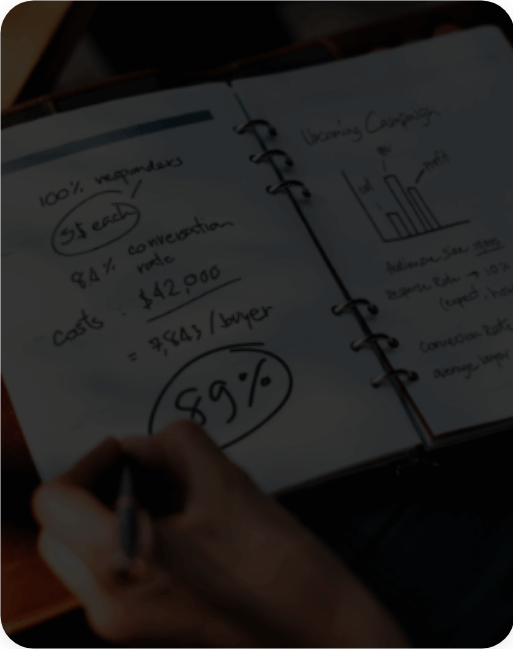 100% responders
5$ each
8.4% conversation
rate
costs : $42,000
= 7,843 / buyer
89%
Upcoming Campaign
profit
Audience Size
response Rate → 10%
(expect.
conversion Rate
average buyer